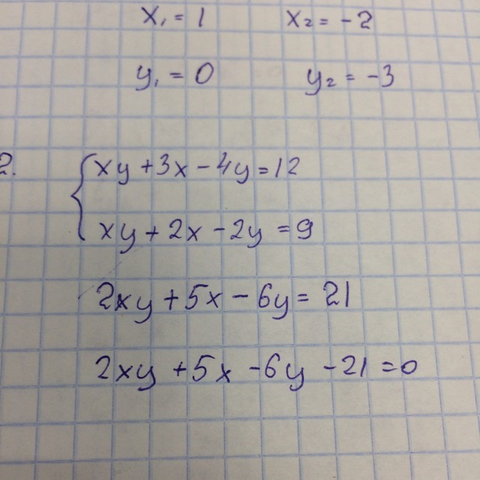 x₁ = 1 x₂ = -2
y₁ = 0 y₂ = -3
2. { xy + 3x - 4y = 12
xy + 2x - 2y = 9
2xy + 5x - 6y = 21
2xy + 5x - 6y - 21 = 0